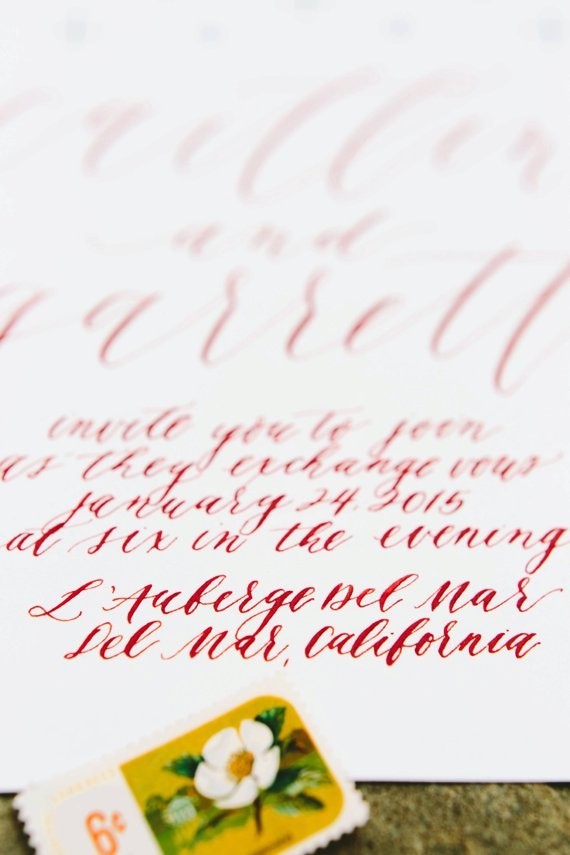 and
garrett
invite you to join
as they exchange vows
january 24.2015
at six in the evening
L'Auberge Del Mar
Del Mar, California
6¢